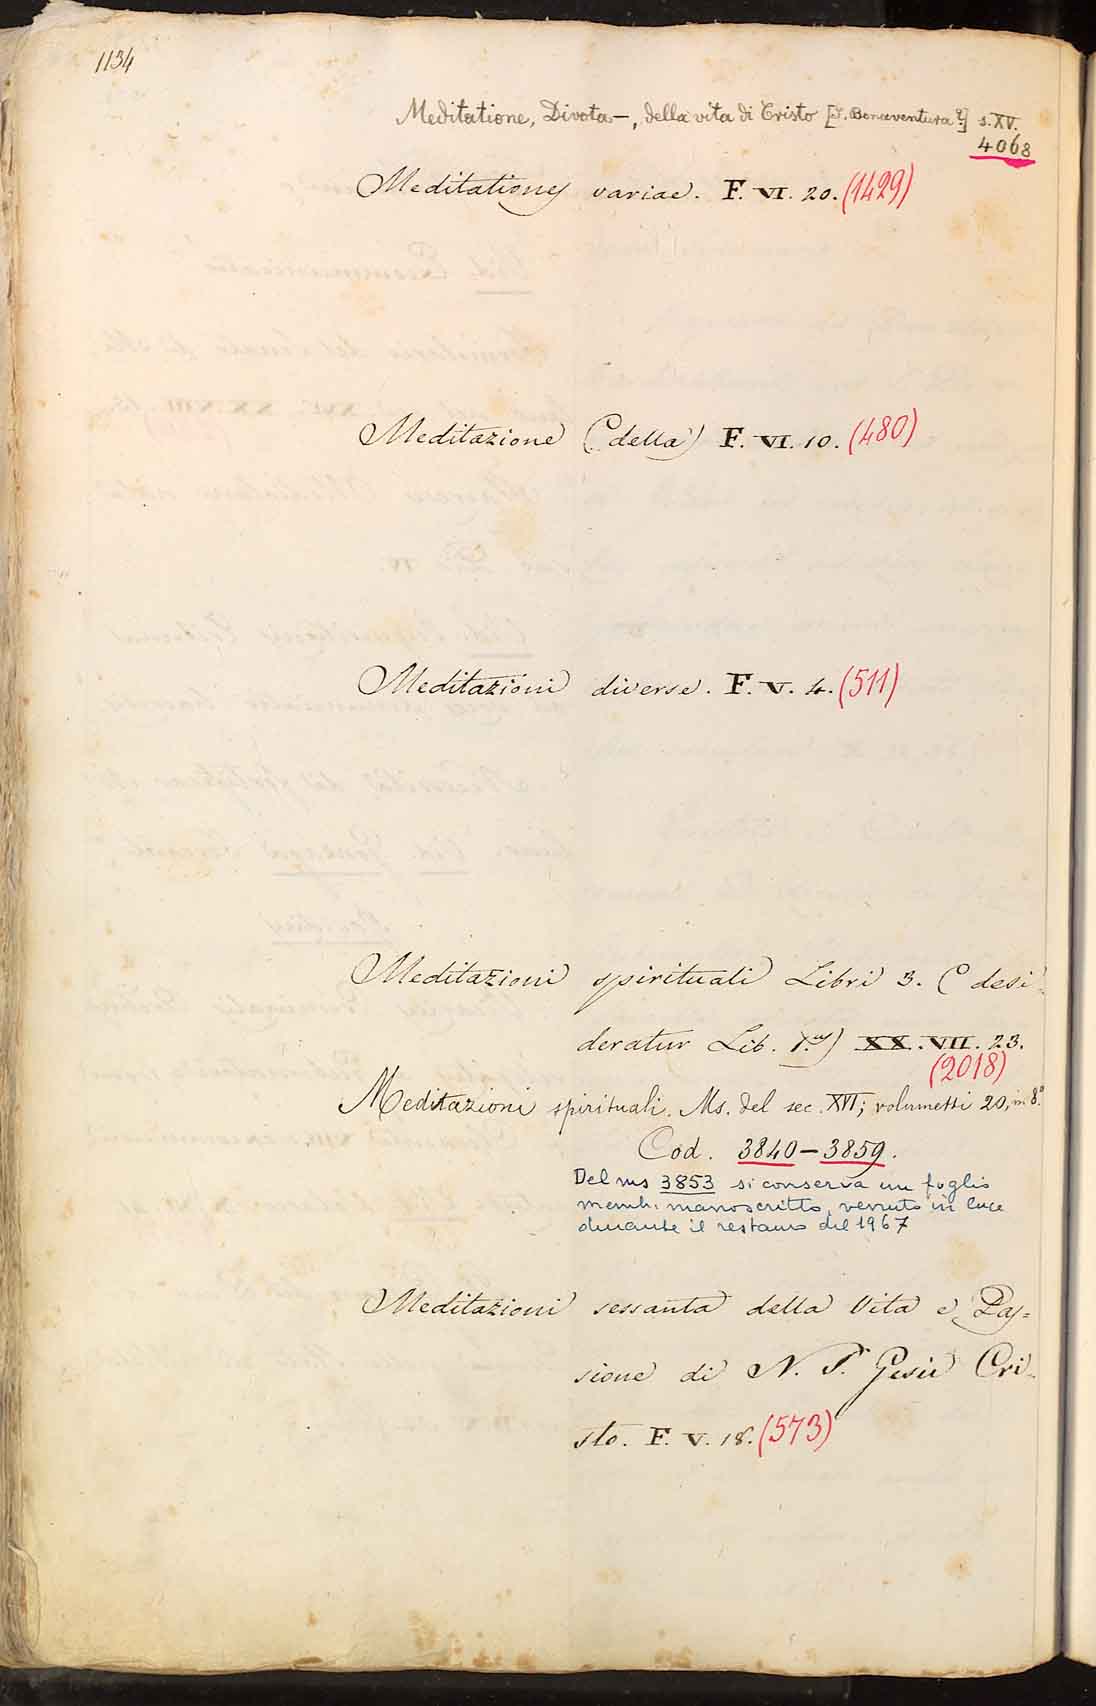 1134
Meditatione, Divota—, della vita di Cristo [S. Bonaventura?] s. XV.
4068
Meditationes variae. F. VI. 20. (1429)
Meditazione (della) F. VI. 10. (480)
Meditazioni diverse. F. V. 4. (511)
Meditazioni spirituali Libri 3. (desi-
deratur Lib. 1.us) XX. VII. 23.
(2018)
Meditazioni spirituali. Ms. del sec. XVI; volumetti 20, in 8.°
Cod. 3840—3859.
Del ms 3853 si conserva un foglio
memb. manoscritto, venuto in luce
durante il restauro del 1967
Meditazioni sessanta della Vita e Pas=
sione di N. S. Gesù Cri-
sto. F. V. 18. (573)